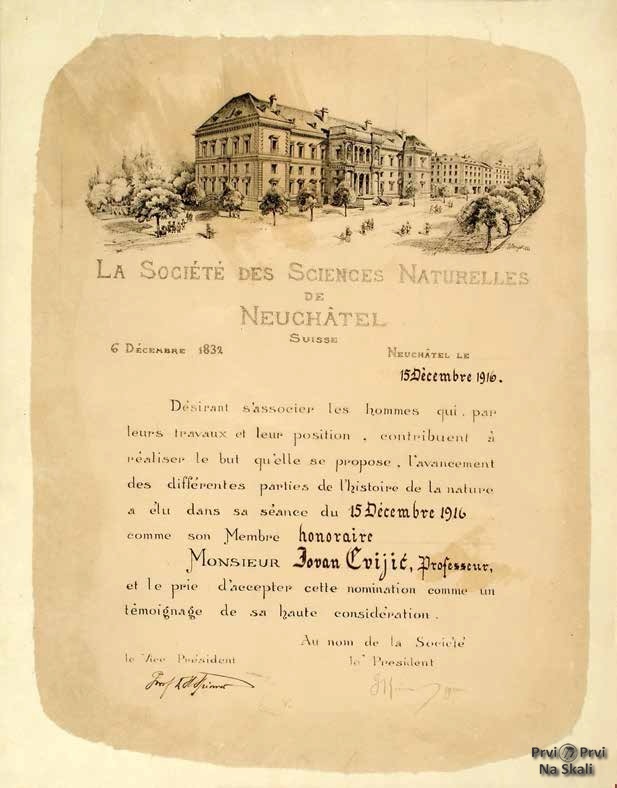 La Société des Sciences Naturelles
de
Neuchâtel
Suisse
6 Décembre 1832
Neuchâtel le
15 Dècembre 1916.
Désirant s'associer les hommes qui, par
leurs travaux et leur position, contribuent à
réaliser le but qu'elle se propose, l'avancement
des différentes parties de l'histoire de la nature
a élu dans sa séance du 15 Dècembre 1916
comme son Membre honoraire
Monsieur Jovan Cvijić, Professeur,
et le prie d'accepter cette nomination comme un
témoignage de sa haute considération.
Au nom de la Société
le Vice Président
le Président
Prof
Prvi Prvi
Na Skali